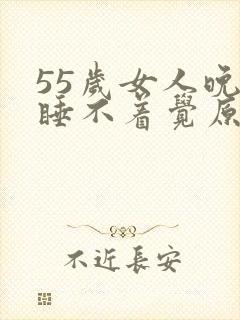 55歲女人晚
睡不着覺原
不近長安